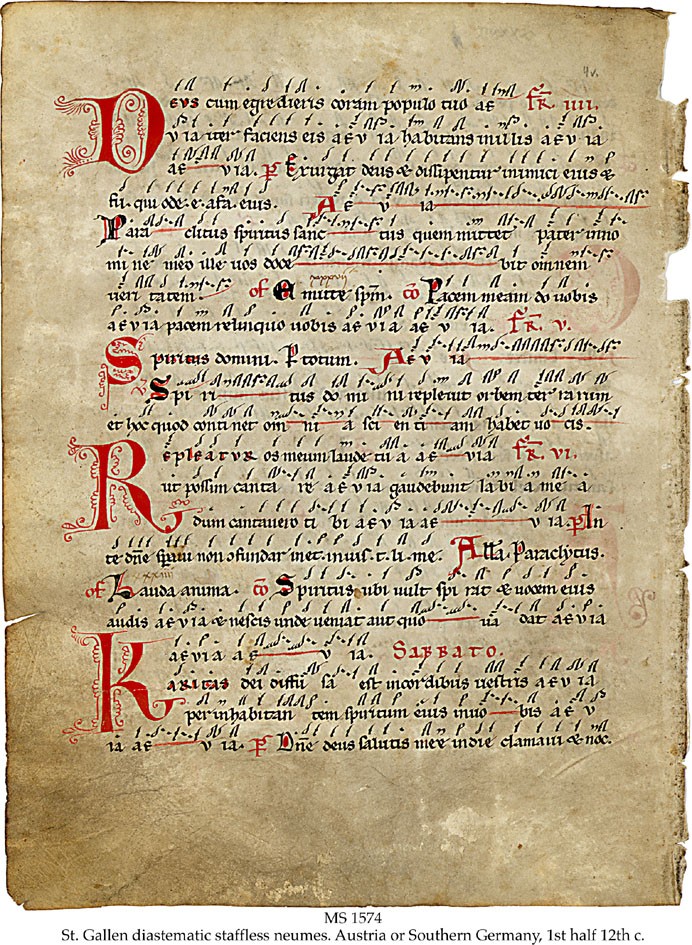 4v.
Deus cum egredieris coram populo tuo ae fr. IIII.
v ia iter faciens eis aev ia habitans in illis aev ia
ae v ia. ps Exurgat deus & dissipentur inimici eius &
fu. qui ode. e. a fa. eius. Ae v ia
Para clitus spiritus sanc tus quem mittet pater in no
mi ne meo ille vos doce bit omnem
veri tatem. of Emitte spm. co Pacem meam do vobis
xxxvii
aevia pacem relinquo vobis aevia ae v ia. fr. V.
Spiritus domini. P totum. Ae v ia
Spi ri tus do mi ni repletur orbem ter rarum
et hoc quod conti net om ni a sci en ti am habet vo cis.
Repleatur os meum laude tu a ae via fr. VI.
ut possim canta re aevia gaudebunt labi a me a
dum cantavero ti bi aevia ae v ia. ps In
te dne speravi non confundar in et. in ius. t. li. me. Alla. Paraclytus.
xxiiii
of Lauda anima. co Spiritus ubi vult spi rat & vocem eius
audis aevia & nescis unde veniat aut quo va dat aevia
aevia ae v ia. SABBATO.
Karitas dei diffu sa est in cordibus vestris aevia
per inhabitan tem spiritum eius in vo bis ae v
ia ae v ia. ps Dne deus salutis mee in die clamavi & noc.
MS 1574
St. Gallen diastematic staffless neumes. Austria or Southern Germany, 1st half 12th c.